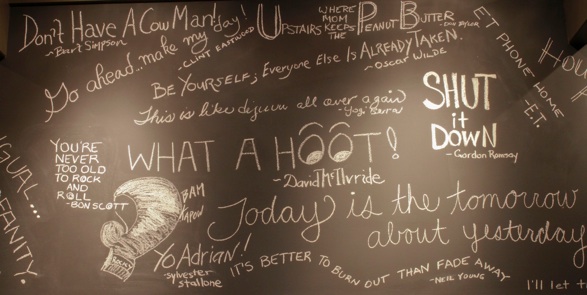 Don't Have A Cow Man!
~Bart Simpson
Go ahead..make my day!
~CLINT EASTWOOD
UPSTAIRS WHERE MOM KEEPS THE PEANUT BUTTER
ET PHONE HOME
-ET.
BE YOURSELF; Everyone Else Is ALREADY TAKEN.
~OSCAR WILDE
This is like dejavu all over again
-Yogi Berra
SHUT
it
DOWN
- Gordon Ramsay
YOU'RE
NEVER
TOO OLD
TO ROCK
AND
ROLL
-BON SCOTT
WHAT A HOOT!
-David McIlvride
BAM
KAPOW
Today is the tomorrow
about yesterday
Yo Adrian!
~sylvester
stallone
IT'S BETTER TO BURN OUT THAN FADE AWAY
-NEIL YOUNG
I'll let